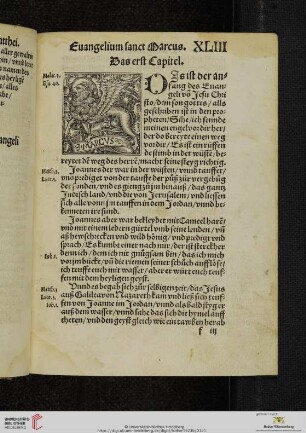 Euangelium sanct Marcus. XLIII
Das erst Capitel.
Malac.3.
Esa.40.
DIs ist der an⸗
fang des Euan⸗
geli vo Jesu Chri
sto/den son gottes/alls
geschriben ist in den pro⸗
pheten/Sihe/ich sende
meinen engel vor dir her/
der do bereyte einen weg
vor dir. Es ist ein rüffen
de stemd in der wüste/be⸗
reytet dē weg des herrē/macht seine steyg richtig.
S MARCVS
Matt.3.
Luce.3.
Joannes der war in der wüsten/vnnd tauffet/
vnd prediget von der tauffe der
sünden/vnd es gieng zu jm hinauß/das gantz
Judisch land/vnd die von Jerusalem/vnd liessen
sich alle von jm tauffen in dem Jordan/vnnd be⸗
kenneten ire sund.
Joannes aber war bekleydet mit Cameel harē/
vnd mit einem ledern gürtel vmb seine lenden/vn̄
aß hewschrecken vnd wild hönig/vnd predigt vnd
Joh.1.
sprach/Es kumbt einer nach mir/der ist stercker
denn ich/dem ich nit gnügsam bin/das ich mich
vor jm bücke/vn̄ die riemen seiner schüch aufflöse/
ich teuffe euch mit wasser/aber er würt euch teuf⸗
fen mit dem heyligen geyst.
Matt.3.
Luce.3.
Joh.1.
Vnnd es begab sich zur selbigen zeyt/das Jesus
auß Galilea von Nazareth kam/vnd ließ sich teuf⸗
fen von Joanne im Jordan/vnnd als bald styg er
auß dem wasser/vnnd sahe das sich die hymel auff
theten/vnd den geyst gleych wie ein tawben herab
f iij
UNIVERSITÄTS-
BIBLIOTHEK
HEIDELBERG
© Universitätsbibliothek Heidelberg